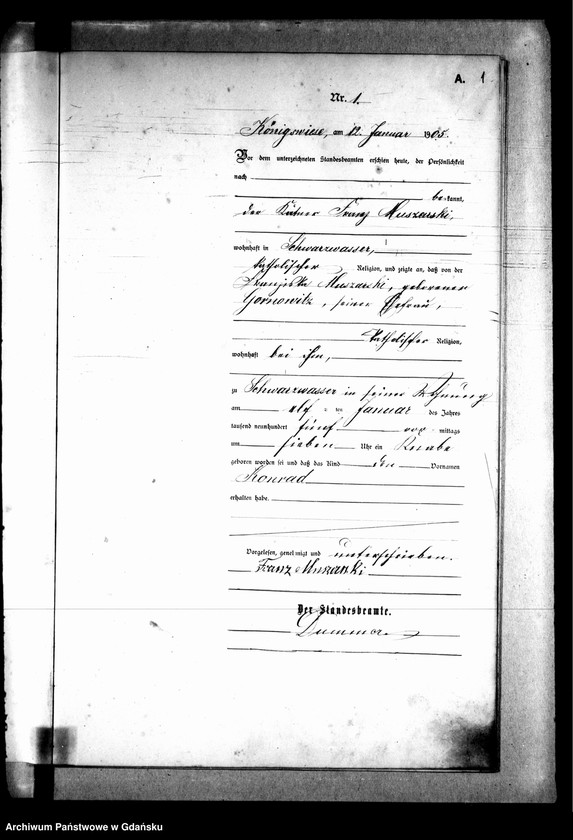 A. 1
Nr. 1.
Königswiese, am 12. Januar 1905.
Vor dem unterzeichneten Standesbeamten erschien heute, der Persönlichkeit
nach
be kannt,
der Kätner Franz Muszarski,
wohnhaft in Schwarzwasser,
katholischer Religion, und zeigte an, daß von der
Franziska Muszarski, geborener
Gornowitz, seiner Ehefrau,
katholischer Religion,
wohnhaft bei ihm,
zu Schwarzwasser in seiner Wohnung
am elf ten Januar des Jahres
tausend neunhundert fünf vor mittags
um sieben Uhr ein Knabe
geboren worden sei und daß das Kind den Vornamen
Konrad
erhalten habe.
Vorgelesen, genehmigt und unterschrieben.
Franz Muszarski
Der Standesbeamte.
Archiwum Państwowe w Gdańsku